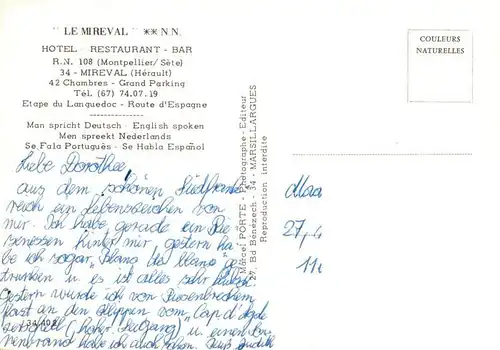 " LE MIREVAL " ** N.N.
HOTEL - RESTAURANT - BAR
R.N. 108 (Montpellier/Sète)
34 - MIREVAL (Hérault)
42 Chambres - Grand Parking
Tél. (67) 74.07.19
Etape du Languedoc - Route d'Espagne
Man spricht Deutsch - English spoken
Men spreekt Nederlands
Se Fala Português - Se Habla Español
Liebe Dorothee,
aus dem schönen Südfrank
reich ein Lebenszeichen von
mir. Ich habe gerade ein Rie
senessen hinter mir, gestern ha
be ich sogar „Blanc de blanc" ge
trunken u es ist alles sehr
Gestern wurde ich von Riesenbrechern
fast an den Klippen vom „Cap d'Agde
zerschellt (hoher Seegang) u einen Son
nenbrand habe ich auch schon. Judith
34-602
Marcel PORTE - Photographe-Editeur
27, Bd Bénézech - 34 - MARSILLARGUES
Reproduction interdite
COULEURS
NATURELLES
27,4